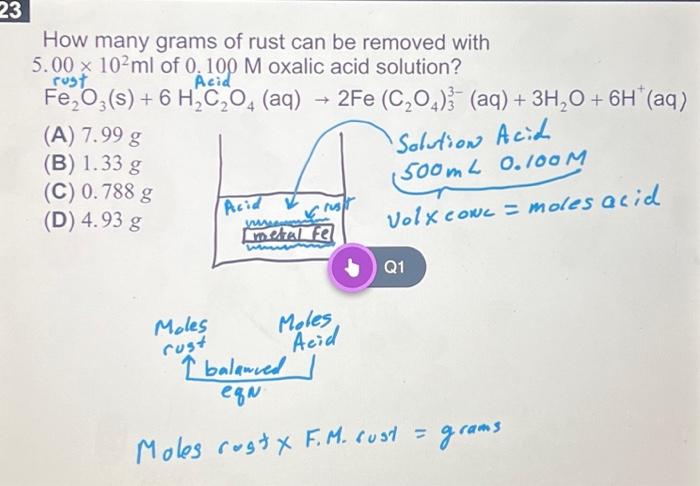 23
How many grams of rust can be removed with
5.00 × 10²ml of 0.100 M oxalic acid solution?
rust Acid
Fe₂O₃(s) + 6 H₂C₂O₄ (aq) → 2Fe (C₂O₄)₃³⁻ (aq) + 3H₂O + 6H⁺(aq)
(A) 7.99 g
(B) 1.33 g
(C) 0.788 g
(D) 4.93 g
Solution Acid
500mL 0.100M
Vol x conc = moles acid
Acid rust
metal Fe
Q1
Moles Moles
rust Acid
balanced
eqN
Moles rust x F.M. rust = grams